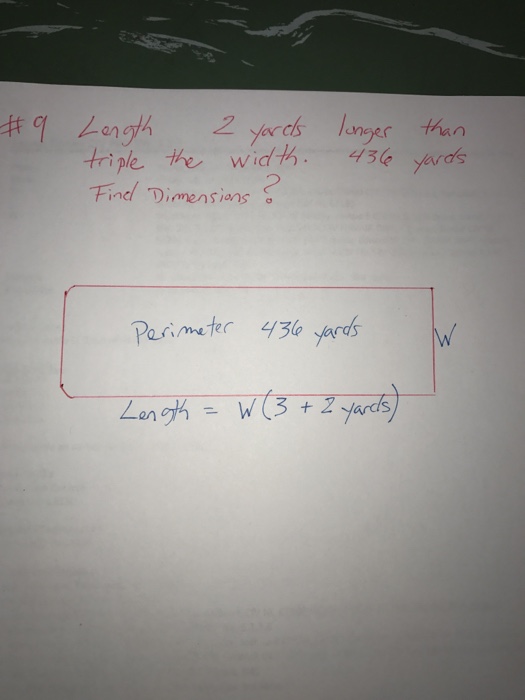 #9 Length 2 yards longer than
triple the width. 436 yards
Find Dimensions?
Perimeter 436 yards
W
Length = W(3 + 2 yards)